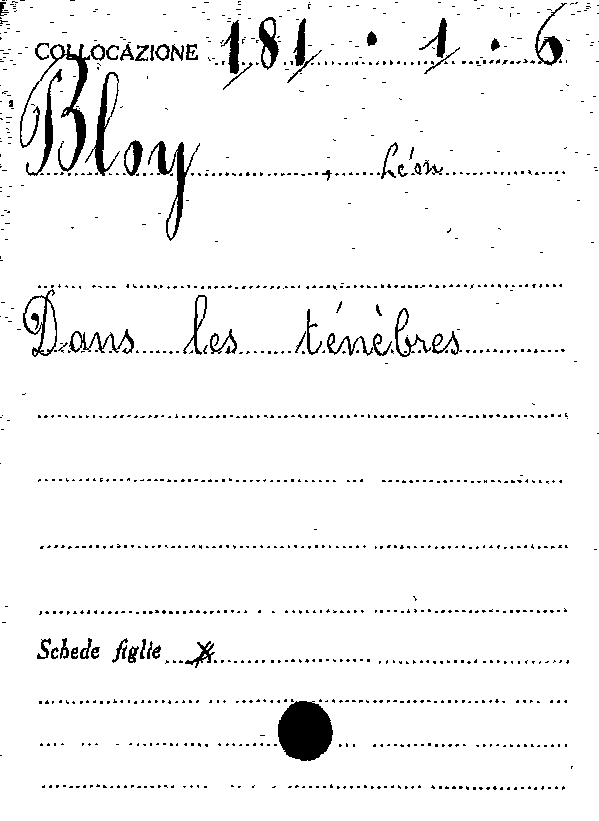 COLLOCAZIONE 181 . 1 . 6
Bloy , Léon
Dans les ténèbres
Schede figlie